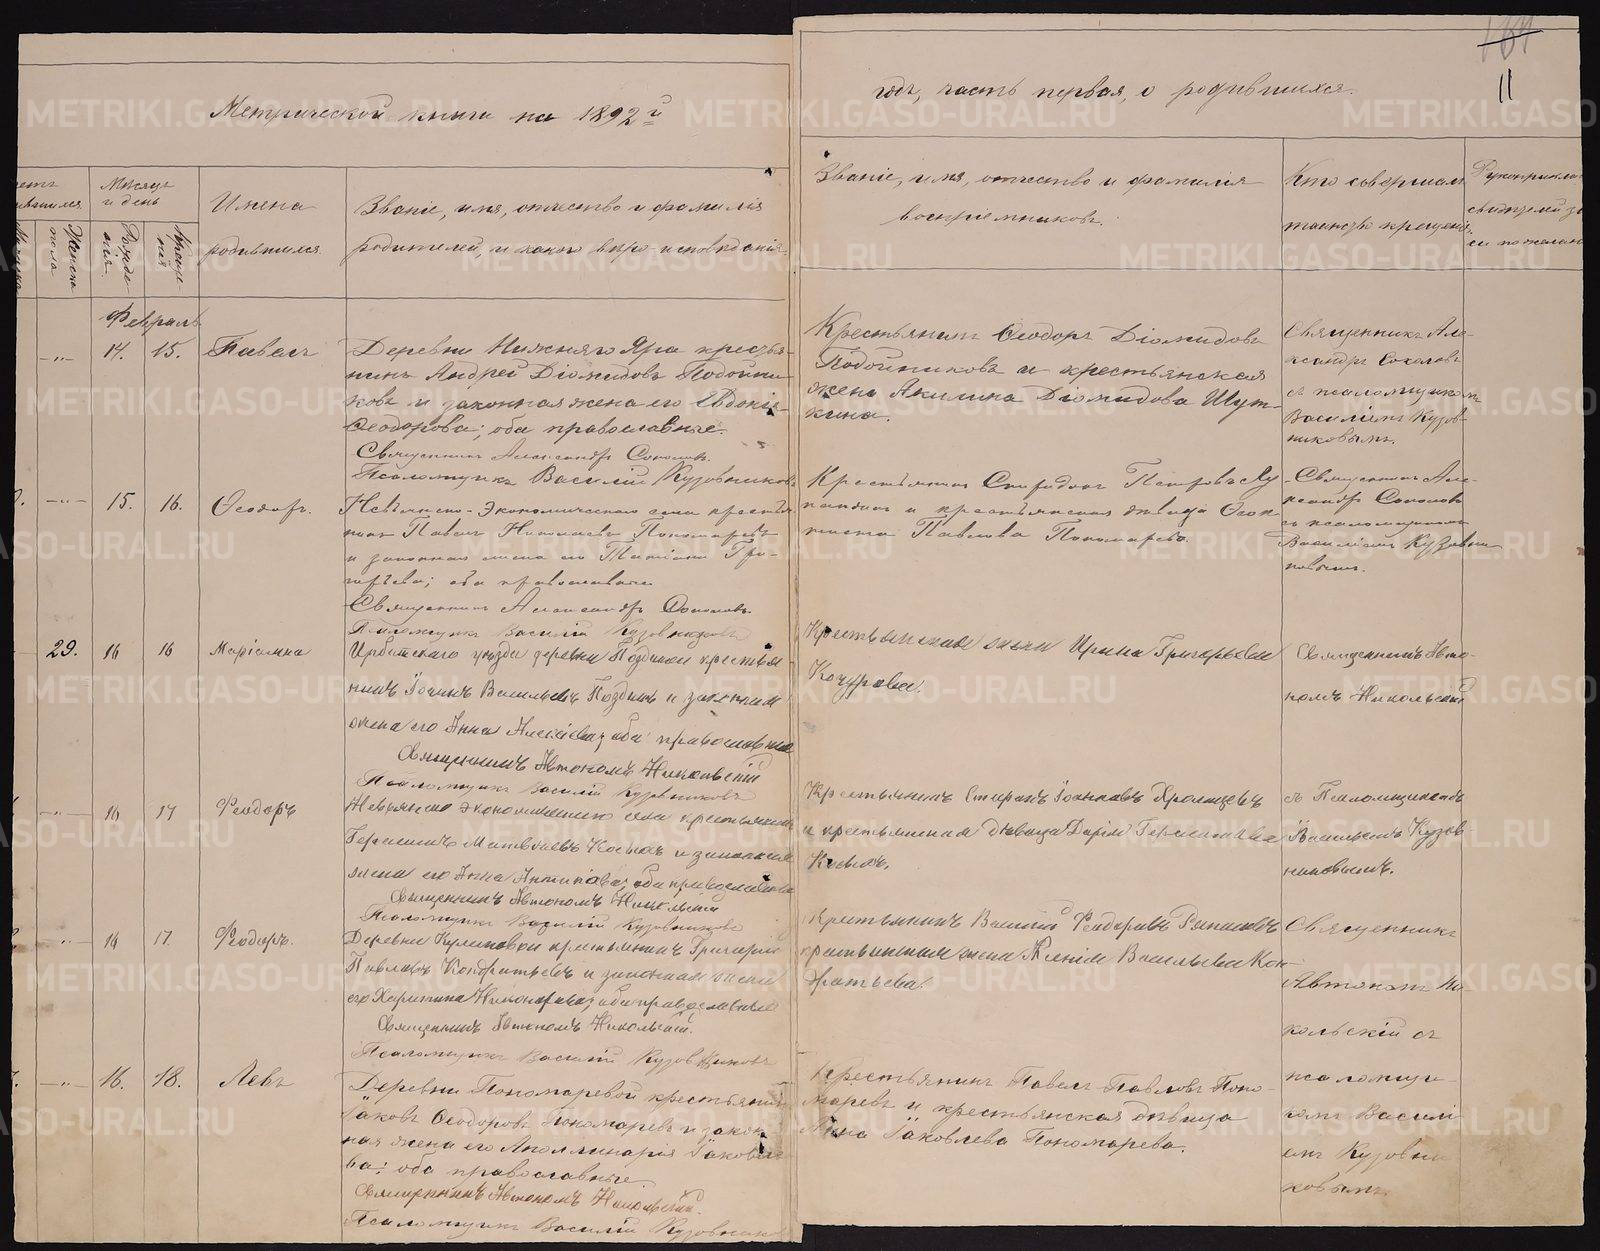 Метрической книги на 1892 й
годъ, часть первая, о родившихся.
11
Мѣсяцъ
и день
Имена
родившихся
Званіе, имя, отчество и фамилія
родителей, и какого вѣроисповѣданія
Званіе, имя, отчество и фамилія
воспріемниковъ.
Кто совершалъ
таинство крещенія
Женска
пола
Рожде
нія
Креще
нія
Февраль
14. 15. Павелъ
Деревни Нижняго Яра крестья-
нинъ Андрей Діомидовъ Подойни-
ковъ и законная жена его Евдокія
Ѳеодорова; оба православные.
Священникъ Александръ Соколовъ.
Псаломщикъ Василій Кузовниковъ
Крестьянинъ Ѳеодоръ Діомидовъ
Подойниковъ и крестьянская
жена Акилина Діомидова Шут-
кина.
Священникъ Але-
ксандръ Соколовъ
съ псаломщикомъ
Василіемъ Кузов-
никовымъ.
15. 16. Ѳеодоръ.
Невьянско-Экономическаго села крестья
нинъ Павелъ Николаевъ Пономаревъ
и законная жена его Татіана Гри-
горьева; оба православные
Священникъ Александръ Соколовъ
Псаломщикъ Василій Кузовниковъ
Крестьянинъ Спиридонъ Петровъ
и крестьянская дѣвица
Павлова Пономарева.
Священникъ Але-
ксандръ Соколовъ
съ псаломщикомъ
Василіемъ Кузовни
ковымъ.
29. 16 16 Маріамна
Ирбитскаго уѣзда деревни крестьян
нинъ Іоаннъ Васильевъ и законная
жена его Анна Алексіева; оба православные
Священникъ Автономъ Никольскій
Псаломщикъ Василій Кузовниковъ
Крестьянская жена Ирина Григорьева
Кочурова.
Священникъ Авто-
номъ Никольскій
16 17 Ѳеодоръ
Невьянско экономическаго села крестьянинъ
Герасимъ Матвѣевъ Косыхъ и законная
жена его Анна Антипова; оба православные
Священникъ Автономъ Никольскій
Псаломщикъ Василій Кузовниковъ
Крестьянинъ Іоанновъ
и крестьянская дѣвица Дарія Герасимова
Косыхъ.
съ Псаломщикомъ
Василіемъ Кузов-
никовымъ.
16 17. Ѳеодоръ.
Деревни Куликовой крестьянинъ Григорій
Павловъ Кондратьевъ и законная жена
его Харитина Никанорова; оба православные
Священникъ Автономъ Никольскій.
Псаломщикъ Василій Кузовниковъ
Крестьянинъ Василій Ѳеодоровъ
крестьянская жена Ксенія Васильева Кон-
дратьева.
Священникъ
Автономъ Ни
кольскій съ
псаломщи-
комъ Василі
емъ Кузовни
ковымъ
16. 18. Левъ
Деревни Пономаревой крестьянинъ
Іаковъ Ѳеодоровъ Пономаревъ и закон-
ная жена его Аполлинарія Іаковле-
ва; оба православные
Священникъ Автономъ Никольскій.
Псаломщикъ Василій Кузовников
Крестьянинъ Павелъ Павловъ Поно-
маревъ и крестьянская дѣвица
Анна Іаковлева Пономарева.
METRIKI.GASO-URAL.RU